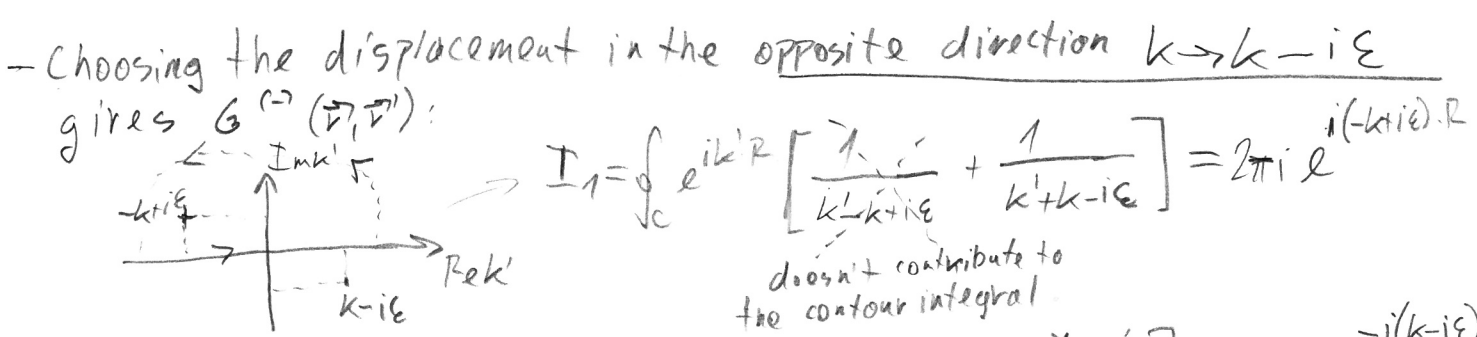 - Choosing the displacement in the opposite direction k→k-iε
gives G⁽⁻⁾(r⃗,r⃗'):
Im k'
-k+iε
Re k'
k-iε
I₁ = ∮_C e^{ik'R} [ 1/(k'-k+iε) + 1/(k'+k-iε) ] = 2πi e^{i(-k+iε)·R}
doesn't contribute to
the contour integral
-i(k-iε)